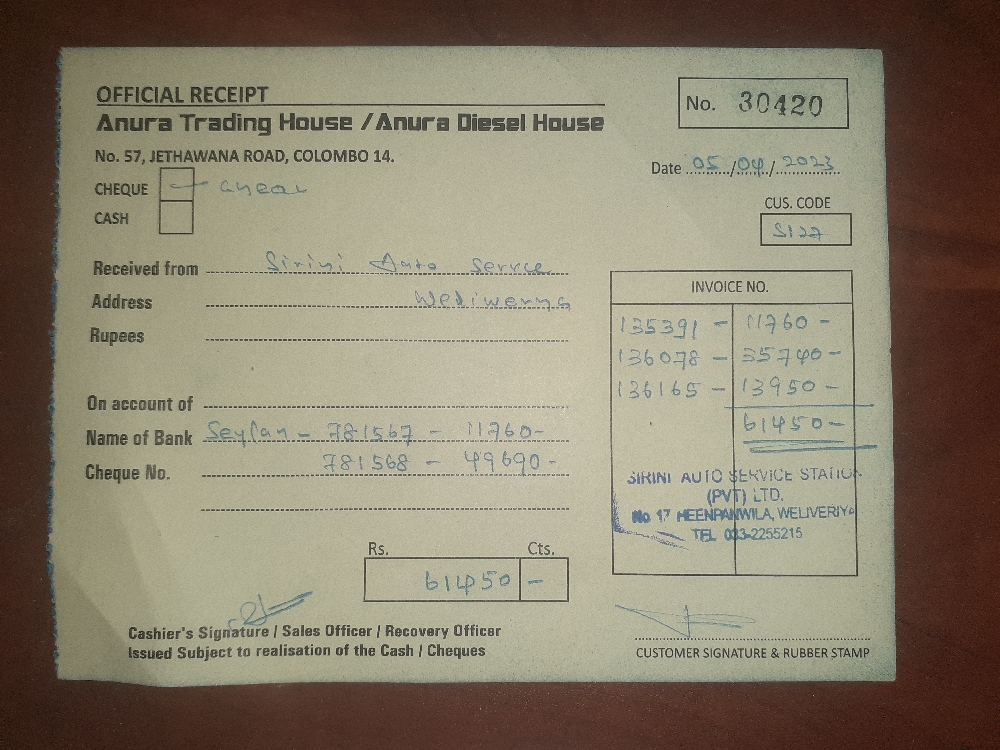 OFFICIAL RECEIPT
No. 30420
Anura Trading House / Anura Diesel House
No. 57, JETHAWANA ROAD, COLOMBO 14.
Date 05/04/2023
CHEQUE
CASH
CUS. CODE
S127
Received from Sirini Auto Service
Address Weliwerya
Rupees
On account of
Name of Bank Seylan - 781567 - 11760-
Cheque No. 781568 - 49690-
INVOICE NO.
135391 - 11760 -
136078 - 35740 -
136165 - 13950 -
61450 -
SIRINI AUTO SERVICE STATION
(PVT) LTD.
No 17 HEENPANWILA, WELIVERIYA
TEL 033-2255215
Rs. Cts.
61450 -
Cashier's Signature / Sales Officer / Recovery Officer
Issued Subject to realisation of the Cash / Cheques
CUSTOMER SIGNATURE & RUBBER STAMP